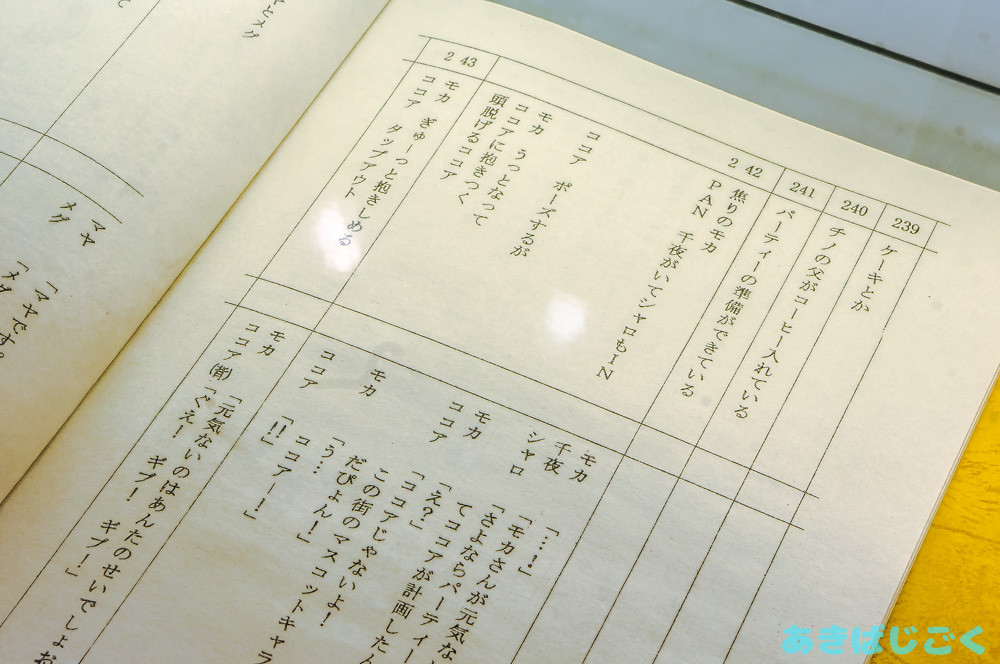 239
ケーキとか
240
チノの父がコーヒー入れている
241
パーティーの準備ができている
242
焦りのモカ
PAN 千夜がいてシャロもIN
ココア ポーズするが
モカ うっとなって
ココアに抱きつく
頭脱げるココア
243
モカ ぎゅーっと抱きしめる
ココア タップアウト
モカ 「…!」
千夜 「モカさんが元気な
シャロ 「さよならパーティー
てココアが計画したん
モカ 「え?」
ココア 「ココアじゃないよ!
この街のマスコットキャラ
だぴょん!」
モカ 「う…
ココアー!」
ココア 「!!」
モカ 「元気ないのはあんたのせいでしょお
ココア(背) 「ぐえ! ギブ! ギブ!」
とメグ
て
マヤ
メグ
「マヤです。
メグ
あきばじごく